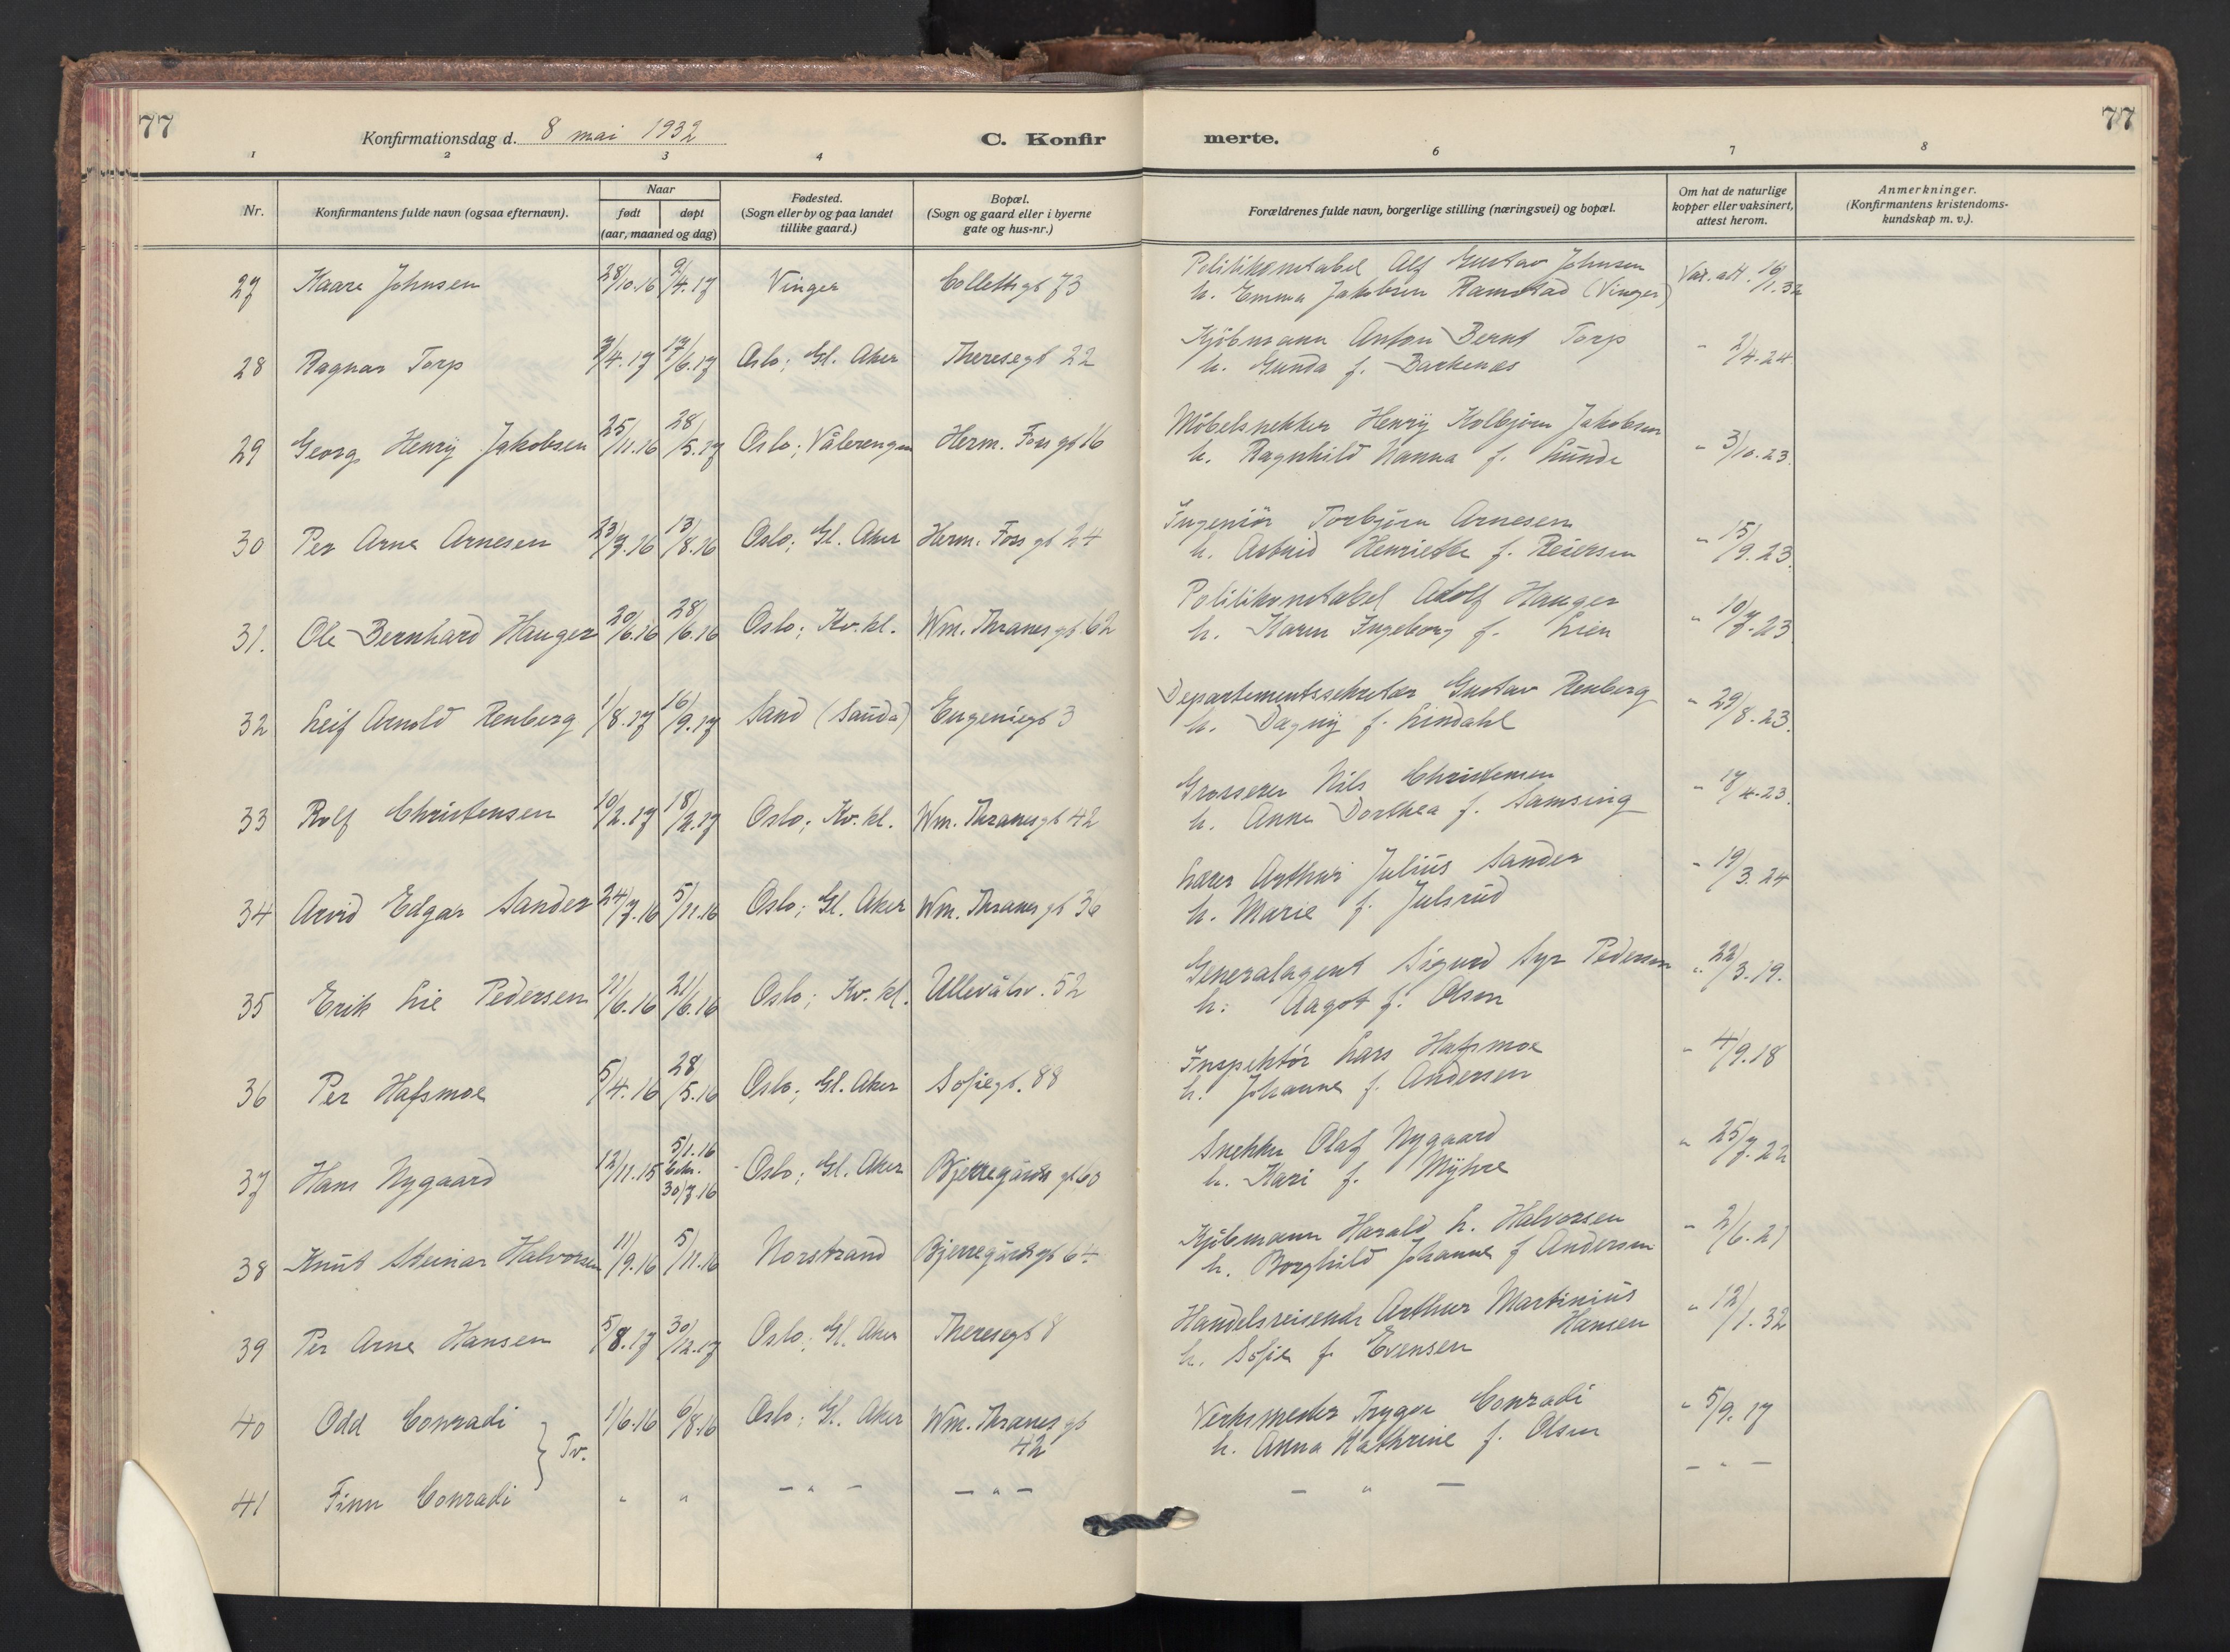 77
77
Konfirmationsdag d. 8 mai 1932
C. Konfir merte.
1 2 3 4 6 7 8
Nr.
Konfirmantens fulde navn (ogsaa efternavn).
Naar
født døpt
(aar, maaned og dag)
Fødested.
(Sogn eller by og paa landet
tillike gaard.)
Bopæl.
(Sogn og gaard eller i byerne
gate og hus-nr.)
Forældrenes fulde navn, borgerlige stilling (næringsvei) og bopæl.
Om hat de naturlige
kopper eller vaksinert,
attest herom.
Anmerkninger.
(Konfirmantens kristendoms-
kundskap m. v.).
27 Kaare Johnsen 28/10.16 9/4.17 Vinger Collettsgt 73 Politikonstabel Alf Gustav Johnsen Vax. att. 16/1.32
h. Emma Jakobsen Ramstad (Vinger)
28 Ragnar Torp 7/4.17 17/6.17 Oslo; Gl. Aker Theresegt 22 Kjöbmann Anton Bernt Torp " 2/4.24
h. Gunda f. Barkenæs
29 Georg Henry Jakobsen 25/11.16 28/5.17 Oslo; Vålerengen Herm. Foss gt 16 Möbelsnekker Henry Kolbjørn Jakobsen " 3/10.23.
h. Ragnhild Nanna f. Lunde
30 Per Arne Arnesen 23/7.16 13/8.16 Oslo; Gl. Aker Herm. Foss gt 24 Ingeniör Torbjørn Arnesen " 15/9.23.
h. Astrid Henriette f. Reiersen
31. Ole Bernhard Hauger 20/6.16 28/6.16 Oslo; Kv. kl. Wm. Thranes gt. 62 Politikonstabel Adolf Hauger " 10/7.23
h. Karen Ingeborg f. Lien
32 Leif Arnold Renberg 1/8.17 16/9.17 Sand (Sauda) Eugeniegt 3 Departementssekretær Gustav Renberg " 29/8.23.
h. Dagny f. Lindahl
33 Rolf Christensen 10/2.17 18/2.17 Oslo; Kv. kl. Wm. Thranesgt 42 Grosserer Nils Christensen " 17/4.23.
h. Anne Dorthea f. Samsing
34 Arvid Edgar Sander 24/7.16 5/11.16 Oslo; Gl. Aker Wm. Thranes gt 36 Lærer Arthur Julius Sander " 19/3.24
h. Marie f. Julsrud
35 Erik Lie Pedersen 11/6.16 21/6.16 Oslo; Kv. kl. Ullevålsv. 52 Generalagent Sigurd Syr Pedersen " 22/3.19.
h. Aagot f. Olsen
36 Per Hafsmoe 5/4.16 28/5.16 Oslo; Gl. Aker Sofiegt. 88 Inspektör Lars Hafsmoe " 4/9.18
h. Johanne f. Andersen
37 Hans Nygaard 12/11.15 5/1.16 Oslo; Gl. Aker Bjerregårds gt 60 Snekker Olaf Nygaard " 25/7.22
30/7.16 h. Kari f. Myhre
38 Knut Steinar Halvorsen 11/9.16 5/11.16 Norstrand Bjerregårdsgt 64 Kjöbmann Harald L. Halvorsen " 2/6.21
h. Borghild Johanne f Andersen
39 Per Arne Hansen 5/8.17 30/12.17 Oslo; Gl. Aker Theresegt 8 Handelsreisende Arthur Martinius " 12/1.32
Hansen
h. Sofie f. Evensen
40 Odd Conradi 1/6.16 6/8.16 Oslo; Gl. Aker Wm. Thranes gt Verksmester Trygve Conradi " 5/9.17
Tv. 42 h. Anna Kathrine f. Olsen
41 Finn Conradi " " - " - - " - - " - - " -